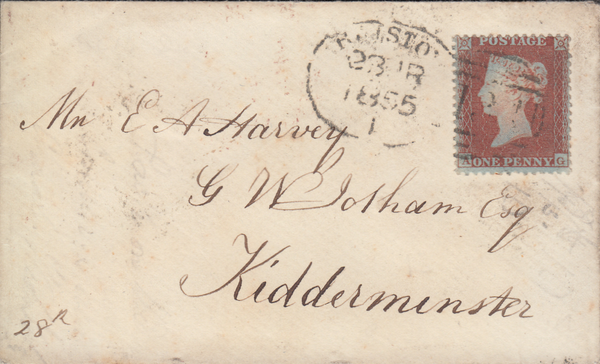 BRISTO
1855
1
POSTAGE
A ONE PENNY G
Mr E A Harvey
G W Jotham Esq
Kidderminster
28